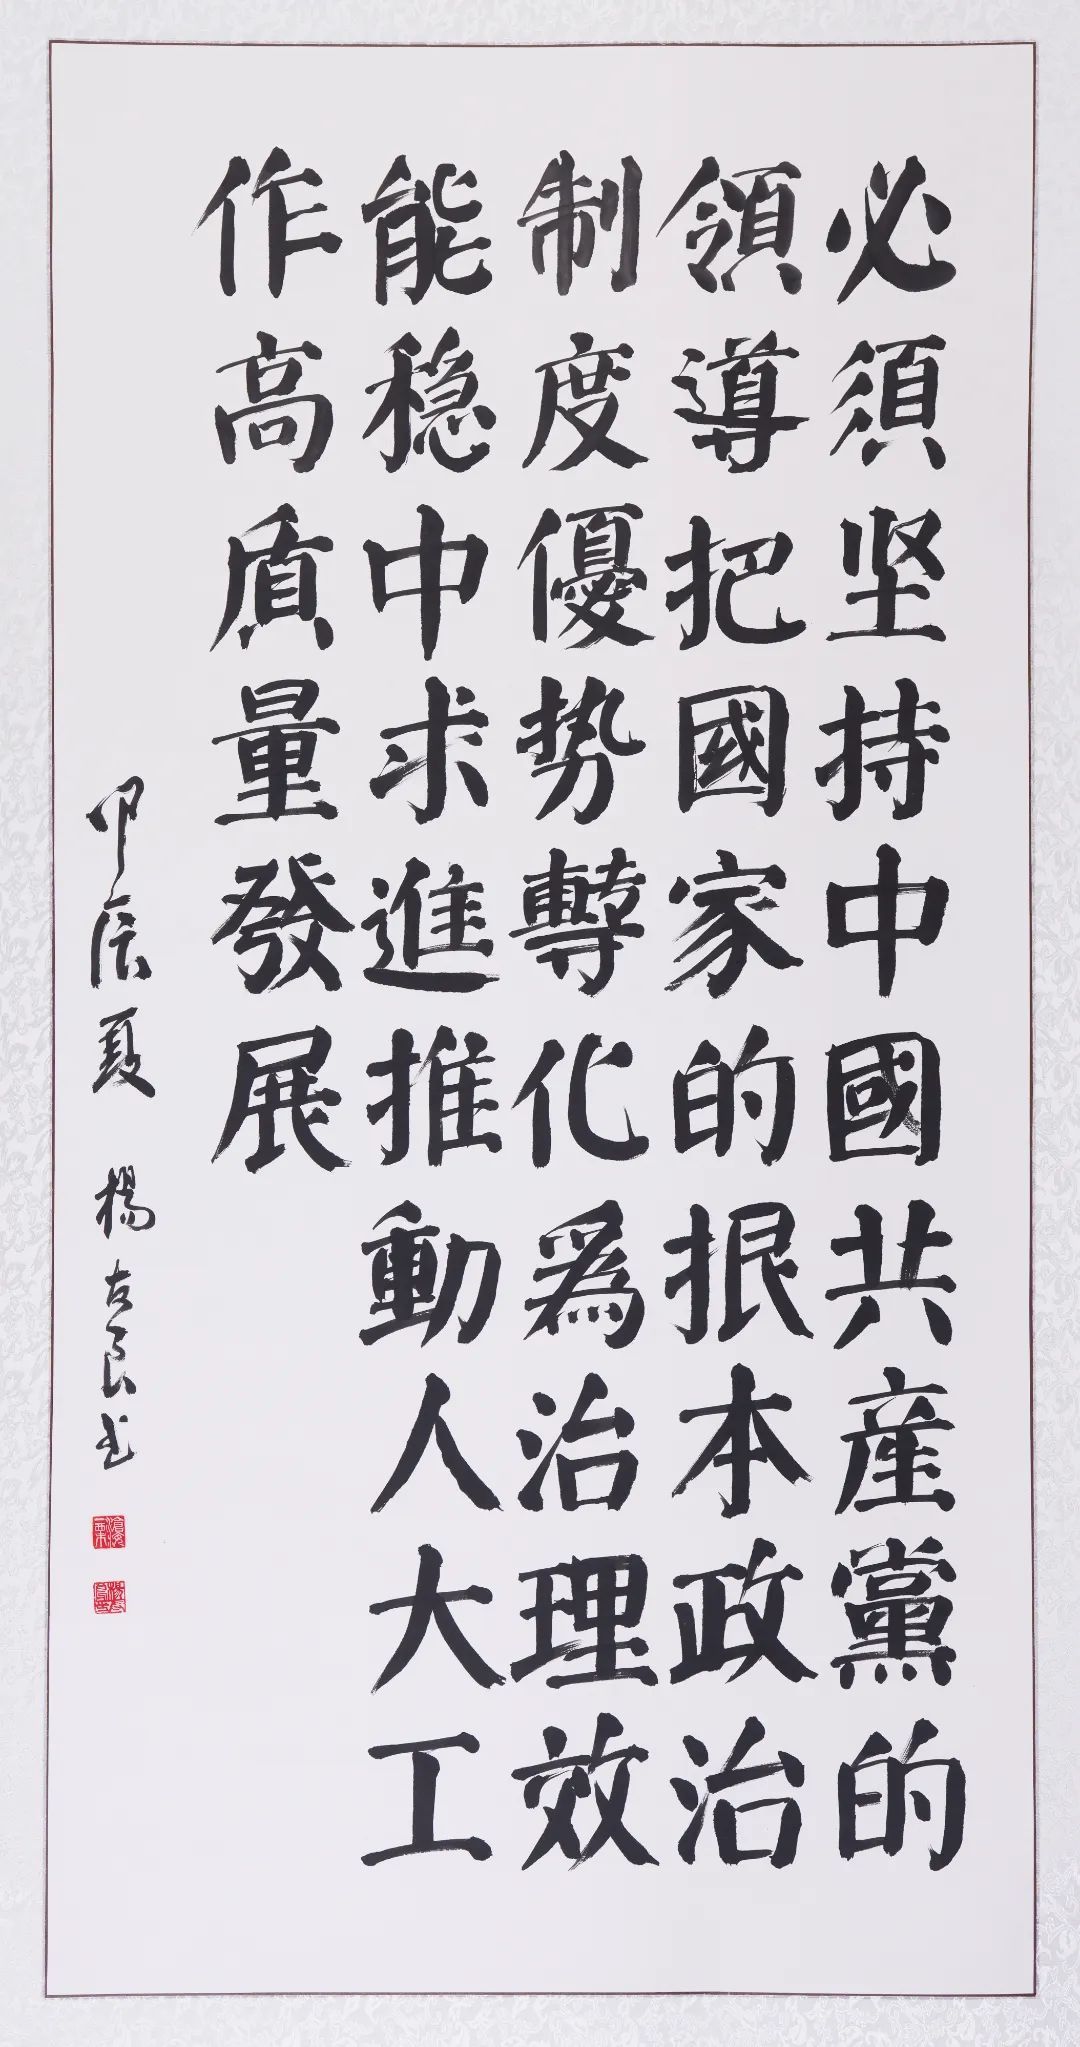 必須坚持中國共産黨的
領導把國家的根本政治
制度優势轉化爲治理效
能稳中求進推動人大工
作高质量發展
甲辰夏 楊友良书